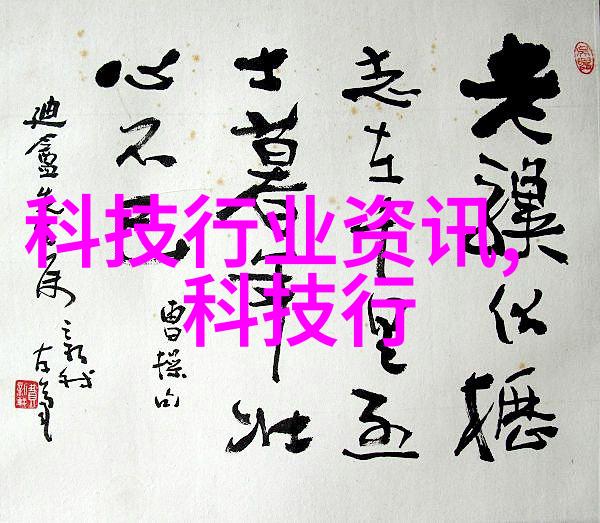 科技行业资讯,
科技行
老驥伏櫪
志在千里烈
士暮年壮
心不已
曹操句